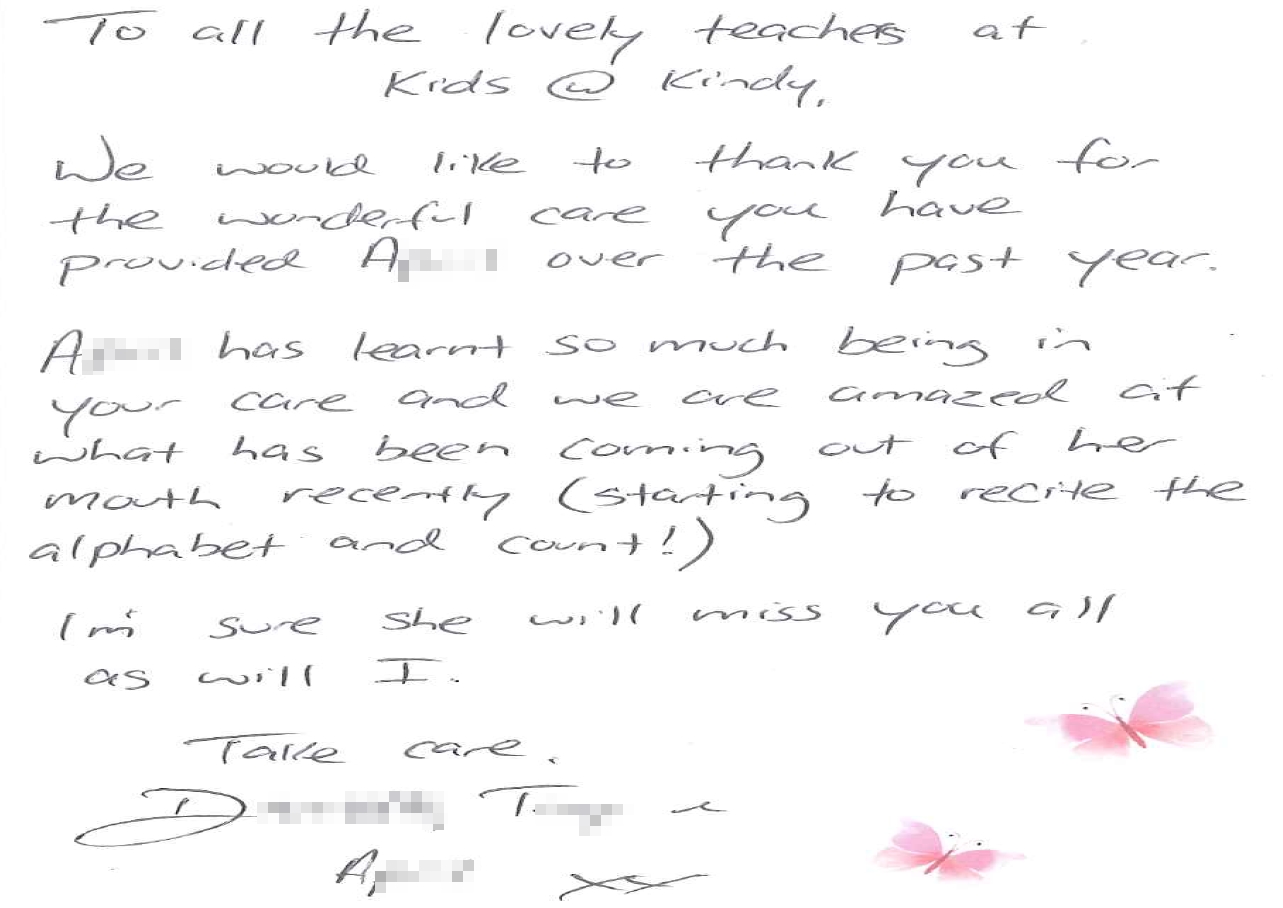 To all the lovely teachers at
Kids @ Kindy,
We would like to thank you for
the wonderful care you have
provided over the past year.
has learnt so much being in
your care and we are amazed at
what has been coming out of her
mouth recently (starting to recite the
alphabet and count!)
I'm sure she will miss you all
as will I.
Take care.
xx